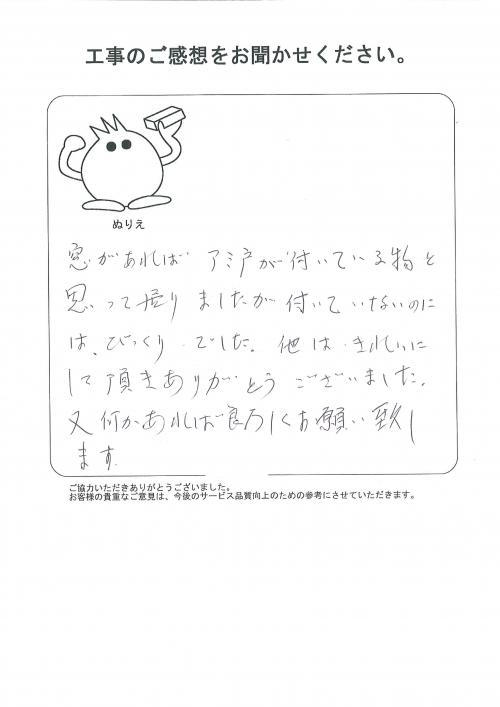 工事のご感想をお聞かせください。
ぬりえ
窓があれば アミ戸が付いている物と
思って居りましたが付いていないのに
は、びっくりでした。他は きれいに
して頂きありがとうございました。
又何かあれば良ろしくお願い致し
ます。
ご協力いただきありがとうございました。
お客様の貴重なご意見は、今後のサービス品質向上のための参考にさせていただきます。